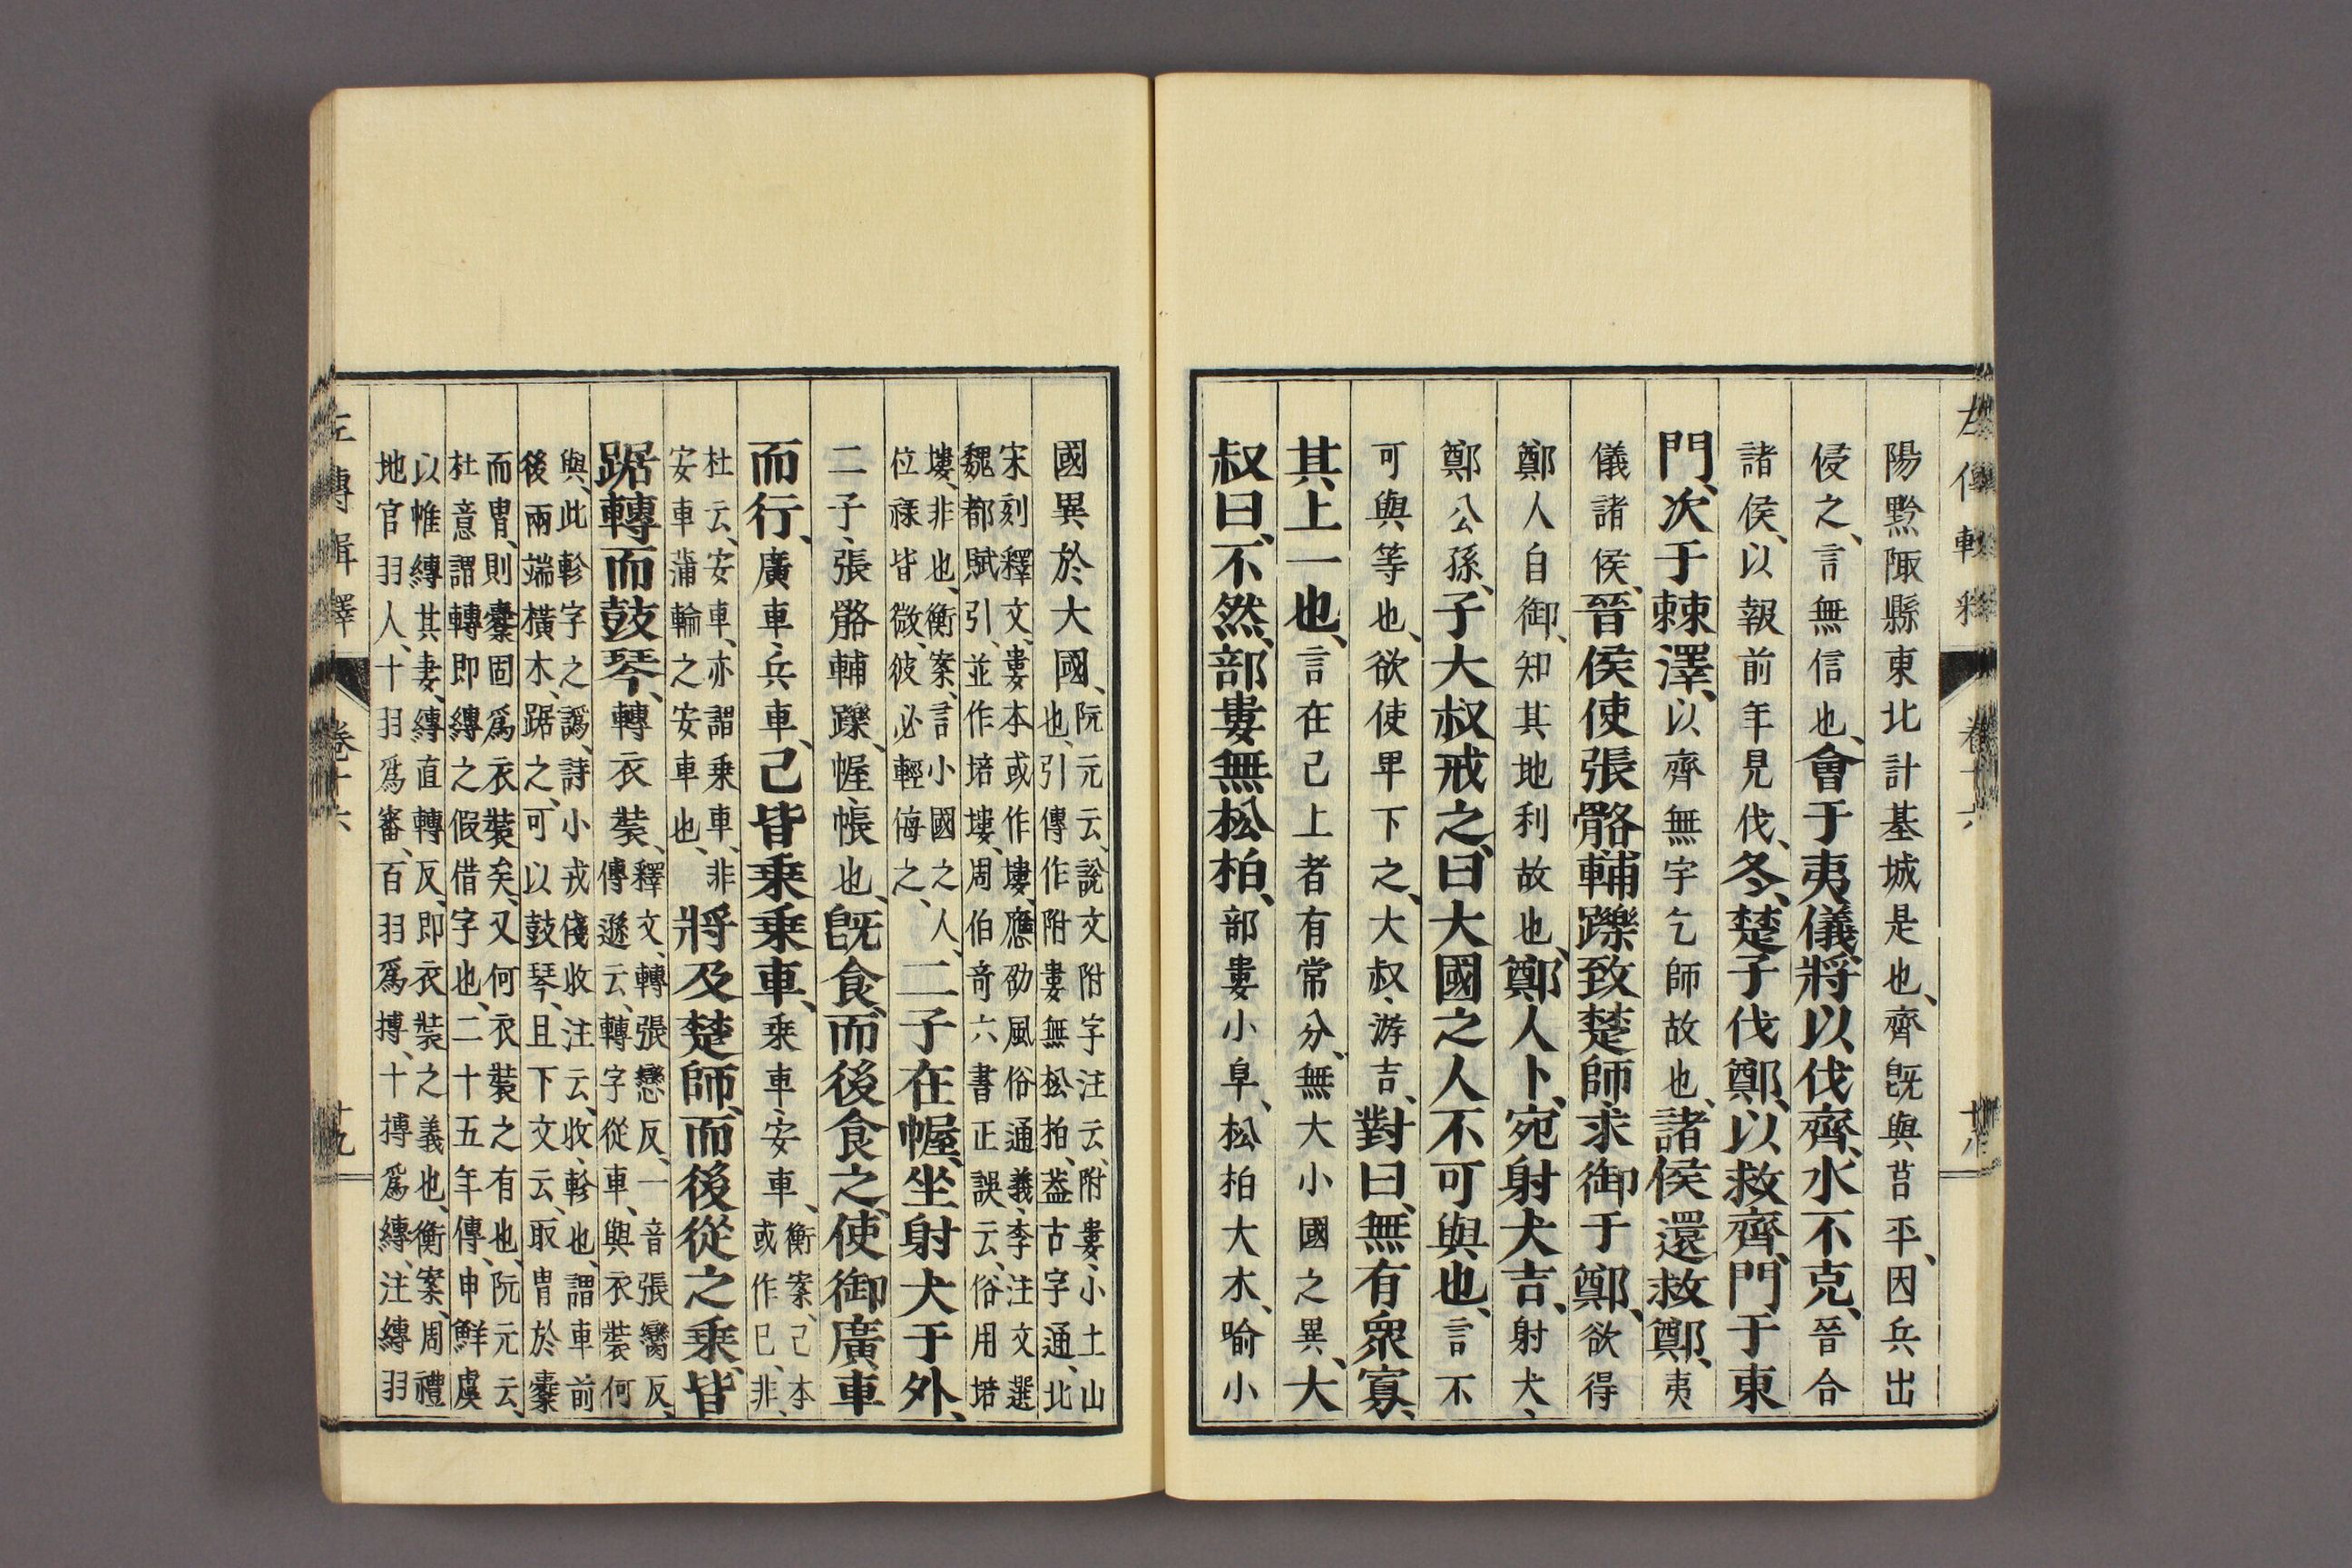 陽黔陬縣東北計基城是也、齊既與莒平、因兵出
侵之、言無信也、會于夷儀、將以伐齊、水不克、晉合
諸侯、以報前年見伐、冬、楚子伐鄭、以救齊、門于東
門、次于棘澤、以齊無宇乞師故也、諸侯還救鄭、夷
儀諸侯、晉侯使張骼輔躒致楚師、求御于鄭、欲得
鄭人自御、知其地利故也、鄭人卜、宛射犬吉、射犬、
鄭公孫、子大叔戒之、曰大國之人不可與也、言不
可與等也、欲使卑下之、大叔、游吉、對曰、無有眾寡、
其上一也、言在己上者有常分、無大小國之異、大
叔曰、不然、部婁無松柏、部婁小阜、松柏大木、喻小
國異於大國、阮元云、說文附字注云、附婁、小土山
也、引傳作附婁無松柏、葢古字通、北
宋刻釋文、婁本或作塿、應劭風俗通義、李注文選
魏都賦引、並作培塿、周伯奇六書正誤云、俗用培
塿、非也、衡案、言小國之人、
位祿皆微、彼必輕侮之、二子在幄、坐射犬于外、
二子、張骼輔躒、幄、帳也、既食、而後食之、使御廣車
而行、廣車、兵車、己皆乘乘車、乘車、安車、衡案、己本
或作巳、非、
杜云、安車、亦謂乘車、非
安車蒲輪之安車也、將及楚師、而後從之乘、皆
踞轉而鼓琴、轉衣裝、釋文、轉張戀反、一音張臠反、
傳遜云、轉字從車、與衣裝何
與、此軫字之譌、詩小戎俴收注云、收、軫也、謂車前
後兩端橫木、踞之、可以鼓琴、且下文云、取冑於櫜
而冑、則櫜固爲衣裝矣、又何衣裝之有也、阮元云、
杜意謂轉即縳之假借字也、二十五年傳、申鮮虞
以帷縳其妻、縳直轉反、即衣裝之義也、衡案、周禮
地官羽人、十羽爲審、百羽爲搏、十搏爲縳、注縳羽
左傳輯釋
卷十六
十九